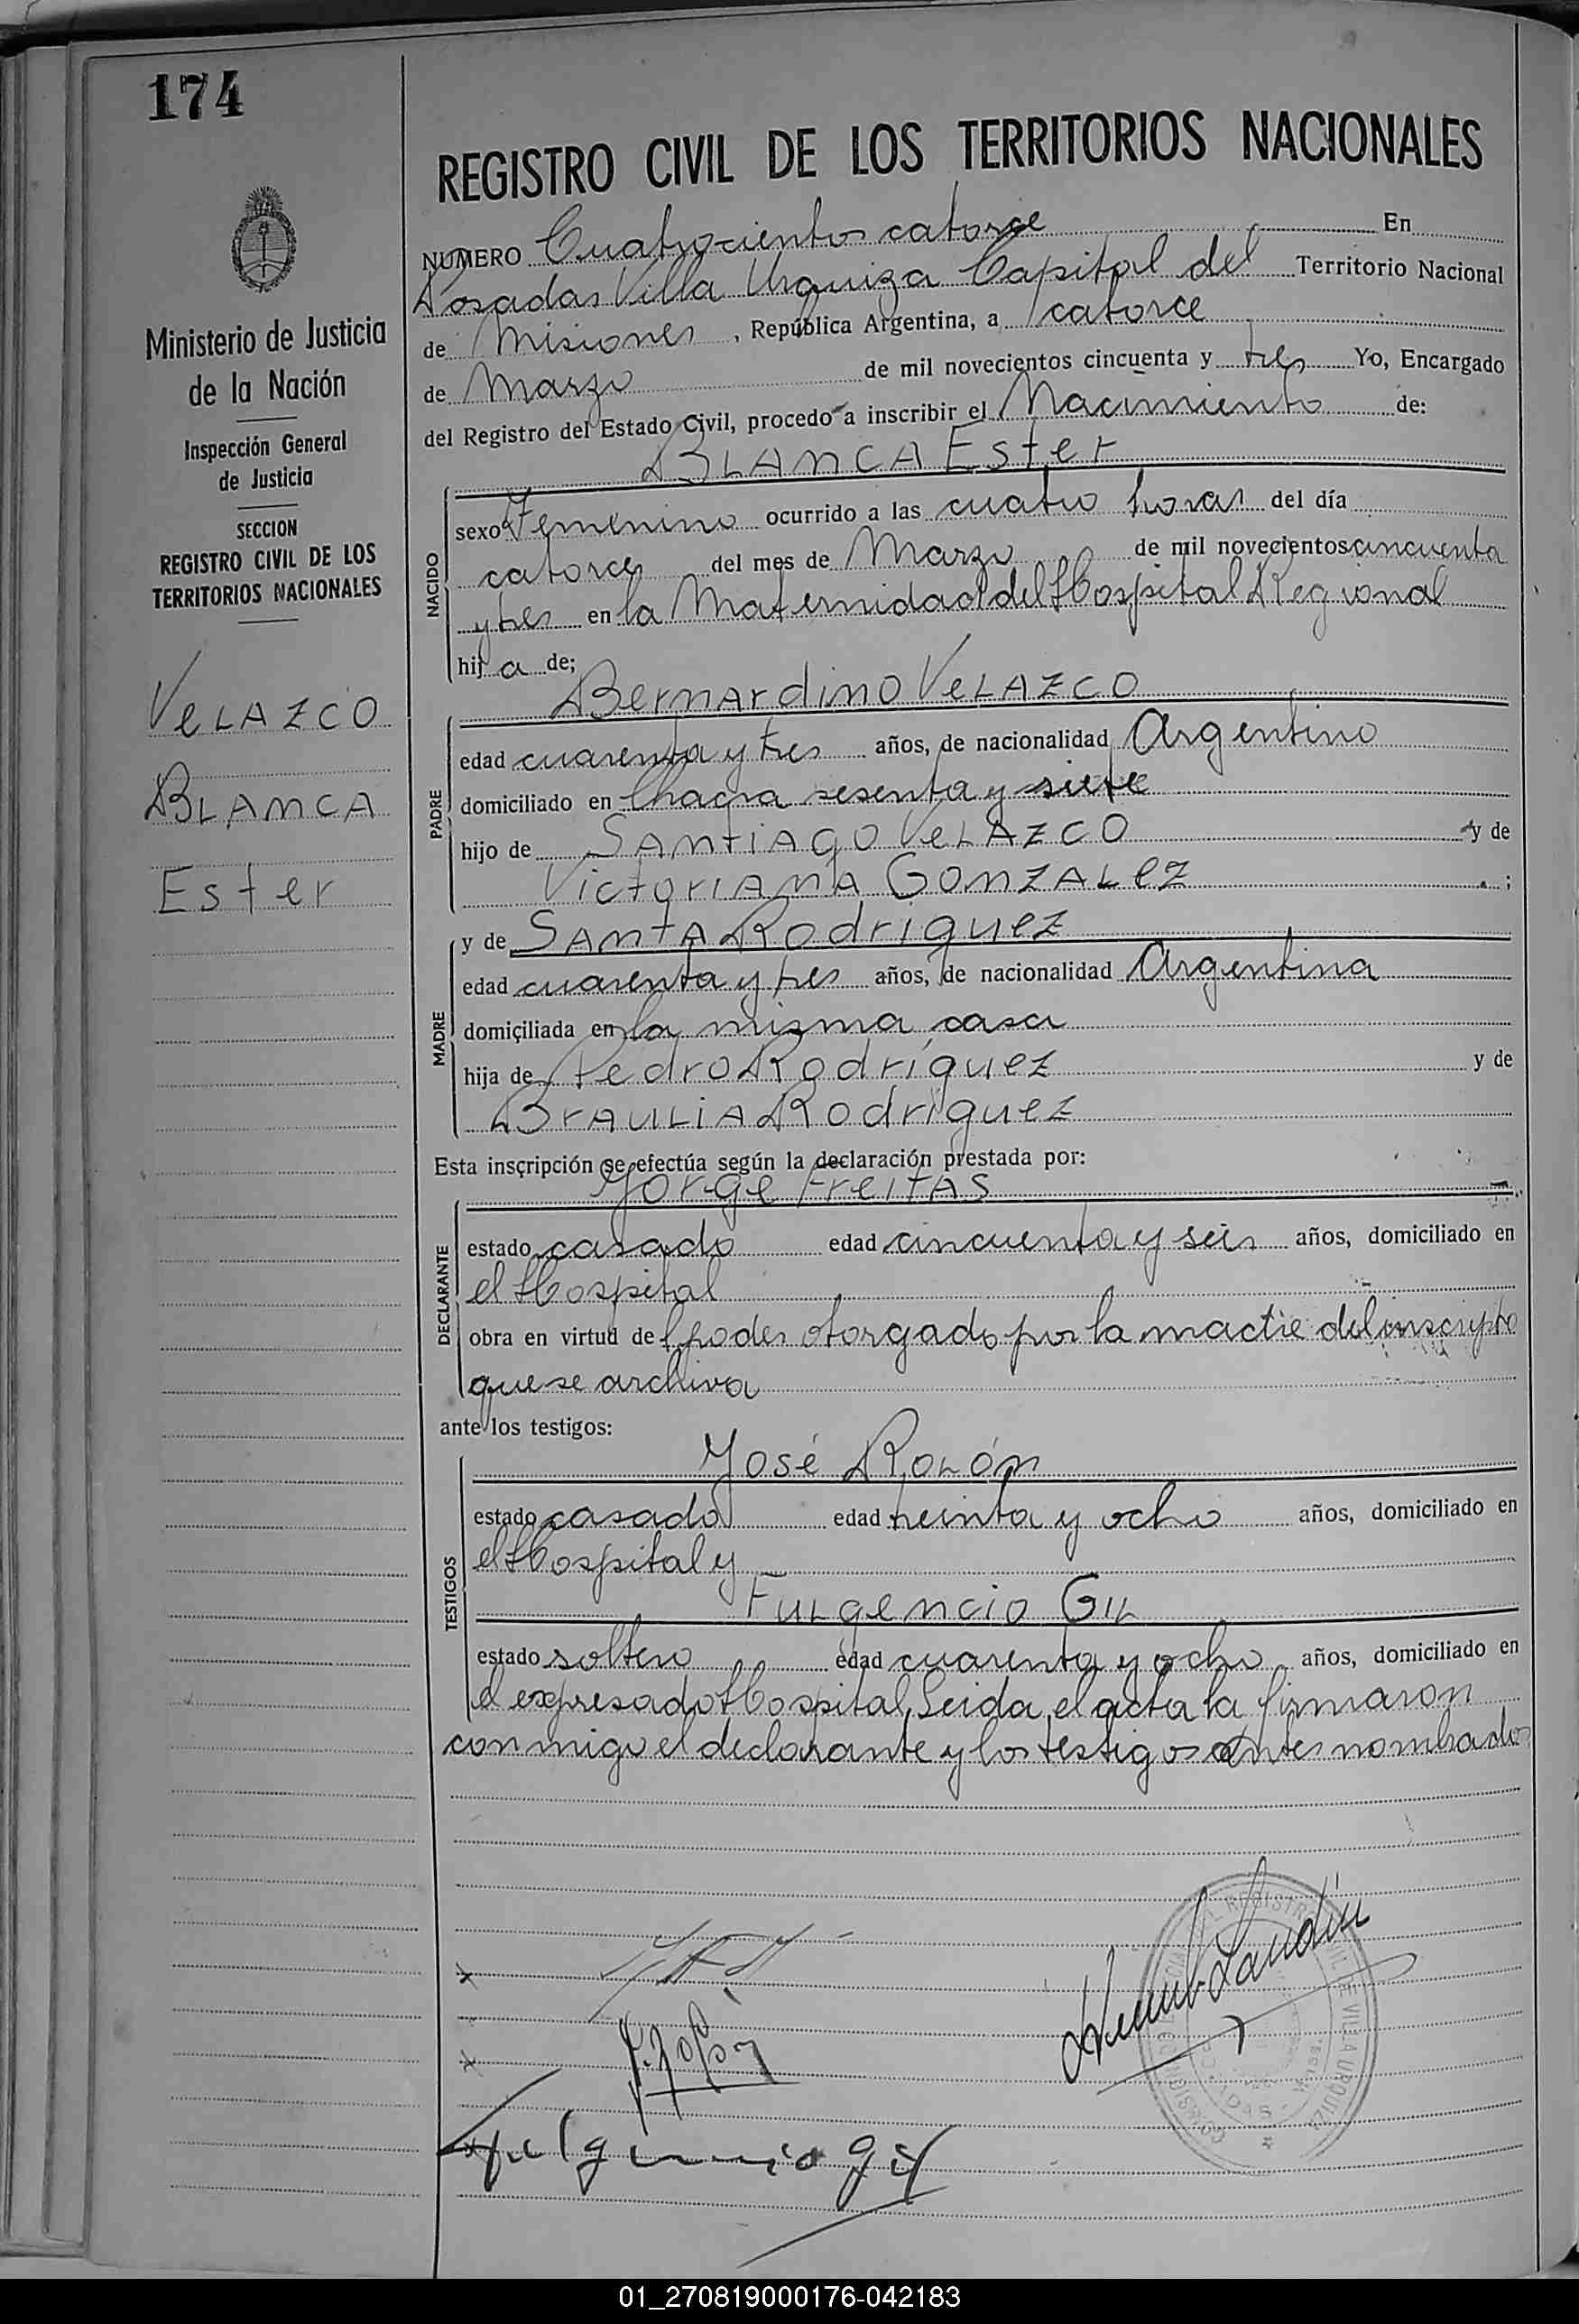 174
REGISTRO CIVIL DE LOS TERRITORIOS NACIONALES
Ministerio de Justicia
de la Nación
Inspección General
de Justicia
SECCION
REGISTRO CIVIL DE LOS
TERRITORIOS NACIONALES
VELAZCO
BLANCA
Ester
NUMERO Cuatrocientos catorce En
Posadas Villa Urquiza Capital del Territorio Nacional
de Misiones, República Argentina, a catorce
de Marzo de mil novecientos cincuenta y tres Yo, Encargado
del Registro del Estado Civil, procedo a inscribir el Nacimiento de:
BLANCA Ester
NACIDO
sexo Femenino ocurrido a las cuatro horas del día
catorce del mes de Marzo de mil novecientos cincuenta
y tres en la Maternidad del Hospital Regional
hija de;
Bernardino VELAZCO
PADRE
edad cuarenta y tres años, de nacionalidad Argentino
domiciliado en Chacra sesenta y siete
hijo de SANTIAGO VELAZCO y de
VICTORIANA GONZALEZ ;
y de SANTA Rodriguez
MADRE
edad cuarenta y tres años, de nacionalidad Argentina
domiciliada en la mizma casa
hija de Pedro Rodríguez y de
BrAULIA Rodríguez
Esta inscripción se efectúa según la declaración prestada por:
Jorge FreitAS
DECLARANTE
estado casado edad cincuenta y seis años, domiciliado en
el Hospital
obra en virtud del poder otorgado por la madre del inscripto
que se archiva
ante los testigos:
José ROLÓN
TESTIGOS
estado casado edad treinta y ocho años, domiciliado en
el Hospital y
Fulgencio Gil
estado soltero edad cuarenta y ocho años, domiciliado en
el expresado Hospital, Leida el acta la firmaron
conmigo el declarante y los testigos antes nombrados
fulgencio gil
01_270819000176-042183